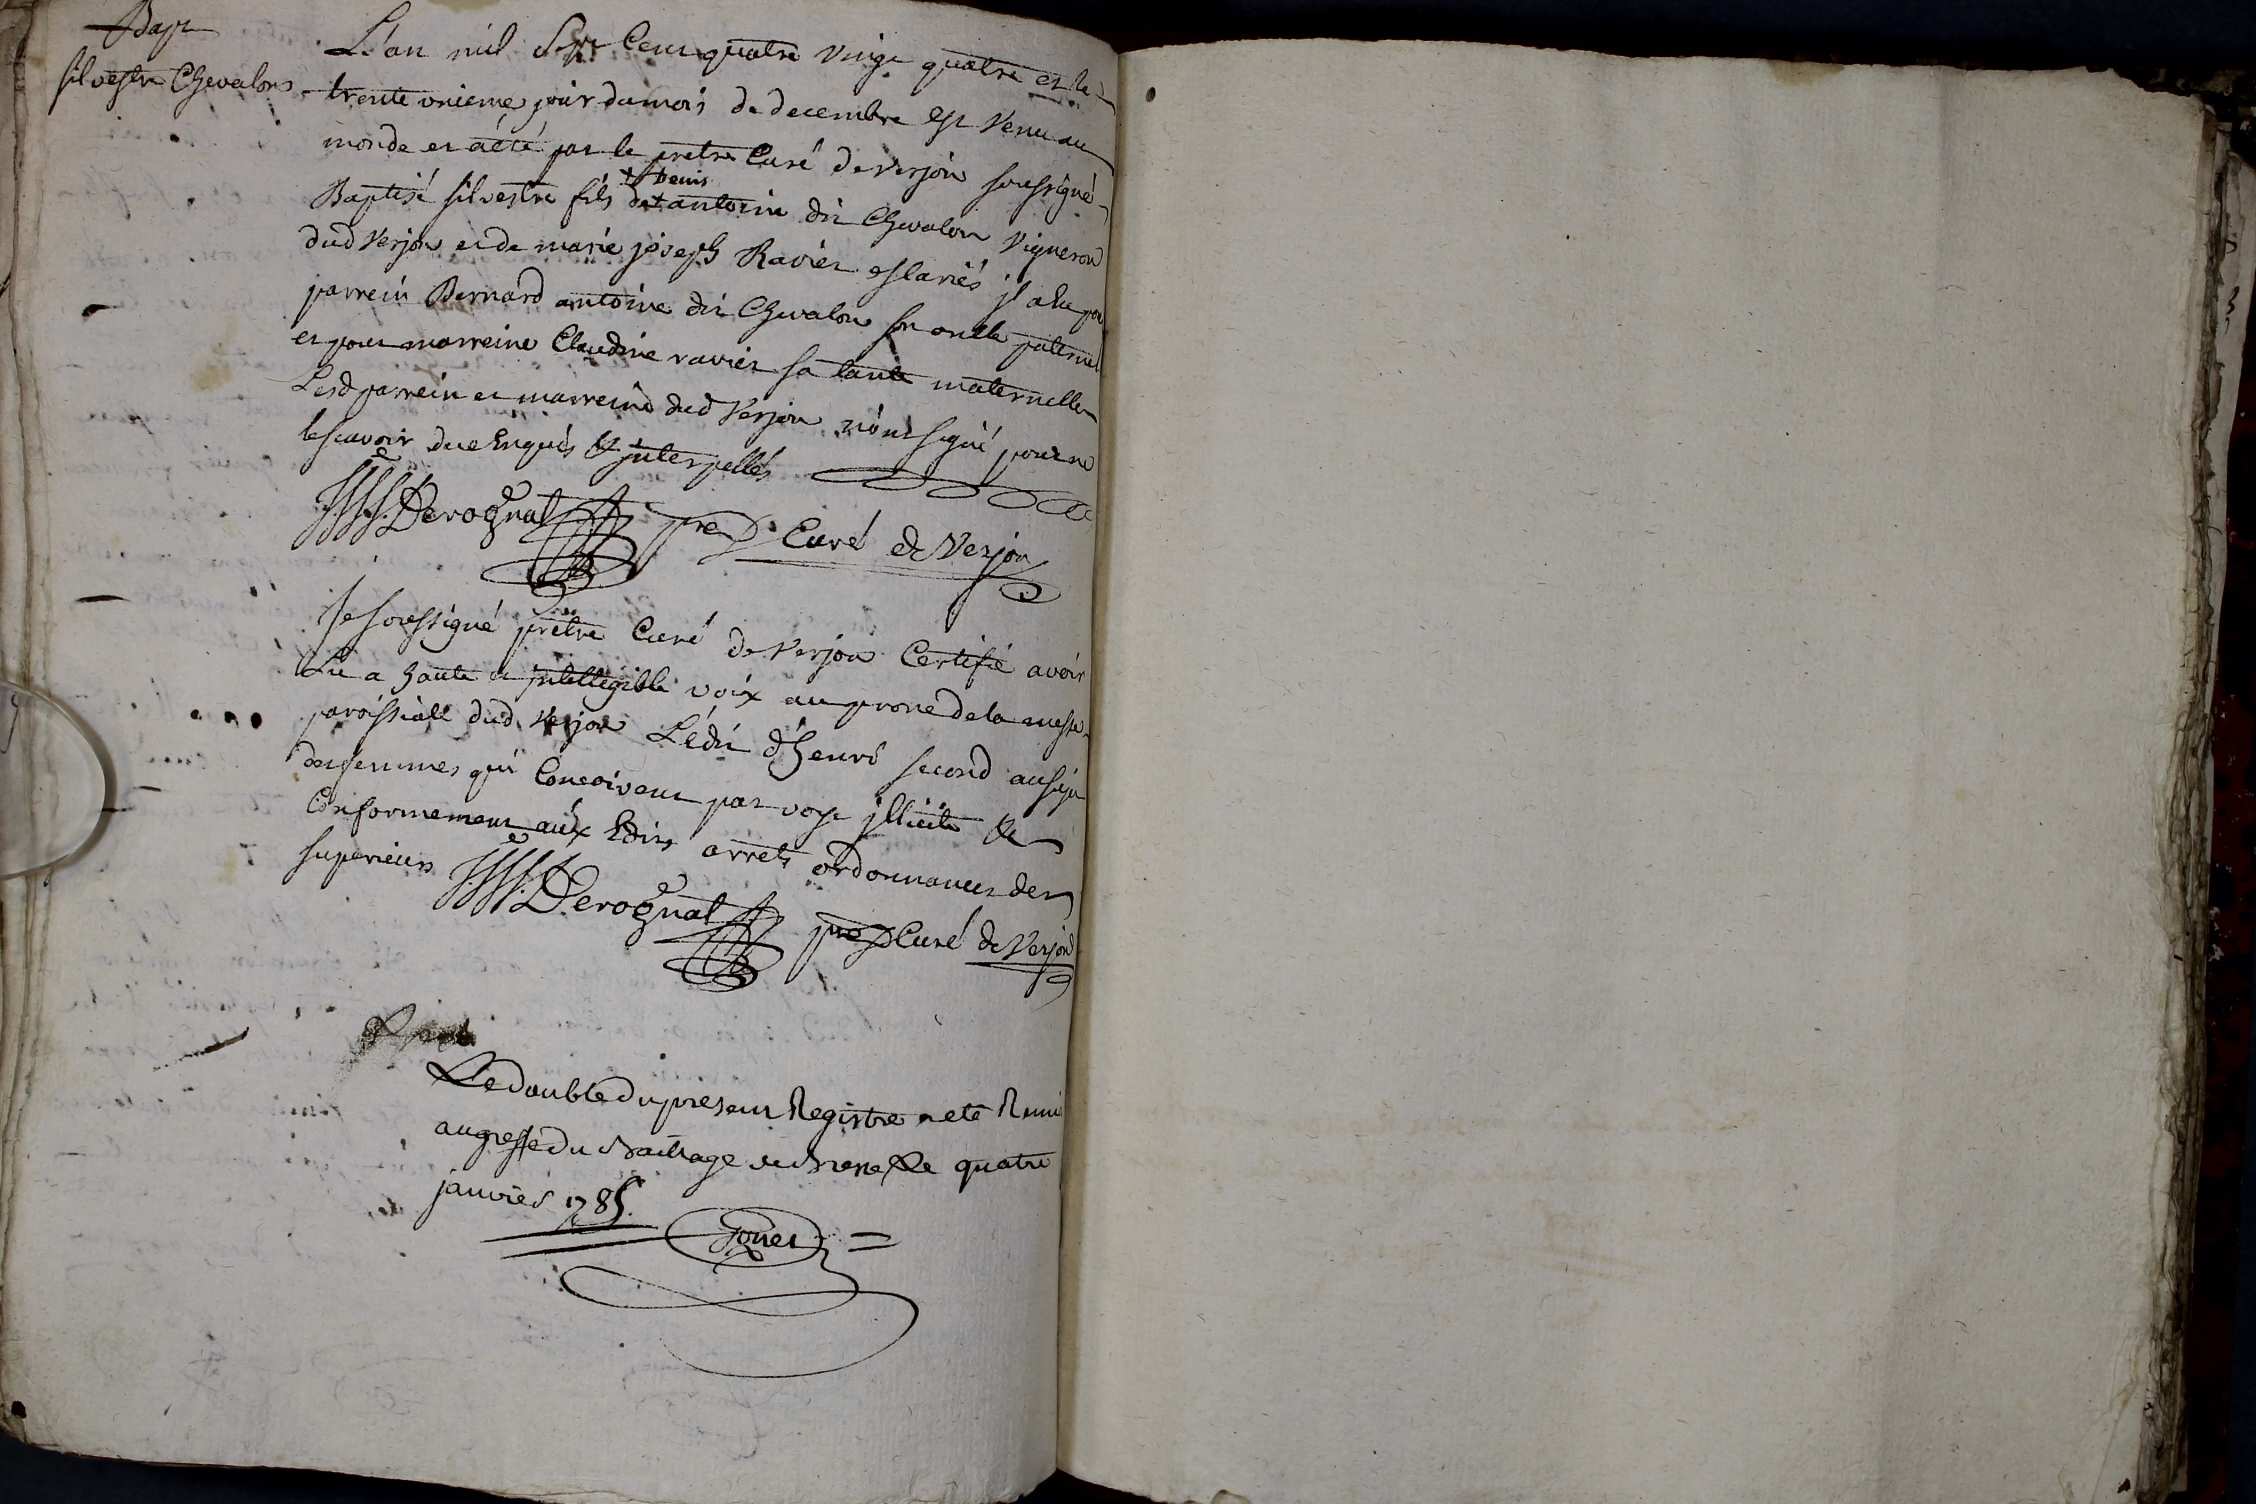 Bapt
silvestre Chevalon
L'an mil sept cent quatre vingt quatre et le
trente unieme jour du mois de decembre est venu au
monde et a été par le pretre Curé de Verjon soussigné
+ Denis
Baptisé silvestre fils de + antoine dit Chevalon vigneron
dud Verjon et de marie joseph Ravier es[p]lariés il a eu pou
parrein Bernard antoine dit Chevalon son oncle paternel
et pour marreine Claudine ravier sa tante maternelle
Lesd parrein et marreine dud Verjon n'ont signé pour ne
le scavoir due Enquis & interpellés
Derognat pre Curé de Verjon
Je soussigné pretre Curé de Verjon Certifié avoir
Lu a haute et intelligible voix au prone de la messe
paroissiale dud Verjon L'édit d'henri second au sujet
des femmes qui Concoivent par voye illicite &
Conformement aux Edits arrets ordonnances des
superieurs
Derognat pre Curé de Verjon
Le double du present Registre a eté Remi
au greffe du Bailliage de Bresse Le quatre
janvier 1785.